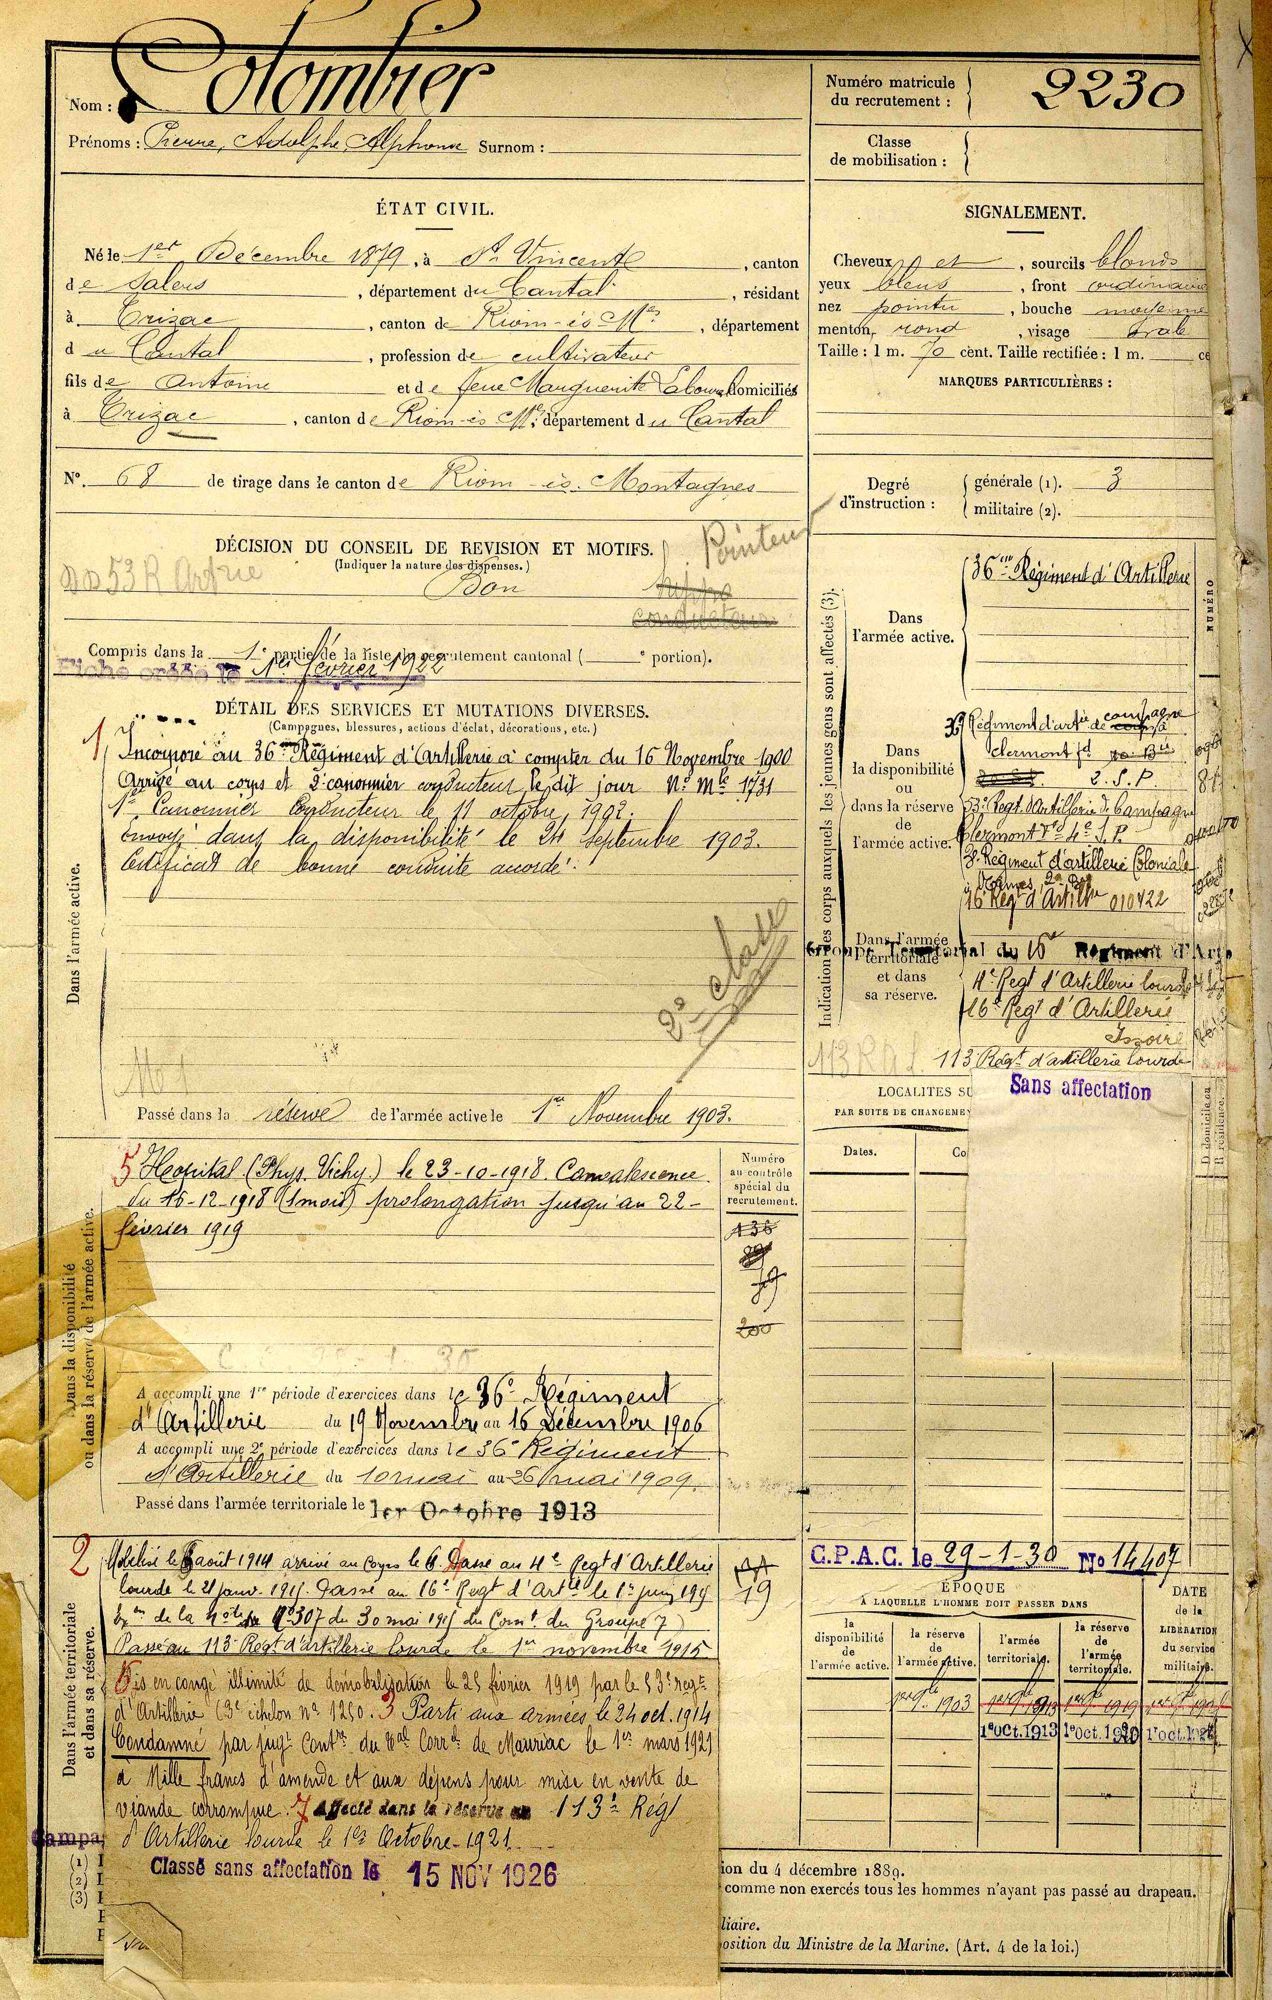 Nom : Colombier
Prénoms : Pierre, Adolphe, Alphonse Surnom :
Numéro matricule
du recrutement : 2230
Classe
de mobilisation :
ÉTAT CIVIL.
Né le 1er Décembre 1879, à St Vincent, canton
de Salers, département du Cantal, résidant
à Trizac, canton de Riom-ès-Mes, département
du Cantal, profession de cultivateur
fils de Antoine et de feue Marguerite domiciliés
à Trizac, canton de Riom-ès-Mes, département du Cantal
No. 68 de tirage dans le canton de Riom-ès-Montagnes
SIGNALEMENT.
Cheveux et, sourcils blonds
yeux bleus, front ordinaire
nez pointu, bouche moyenne
menton rond, visage ovale
Taille : 1 m. 70 cent. Taille rectifiée : 1 m. ce
MARQUES PARTICULIÈRES :
Degré
d'instruction :
générale (1). 3
militaire (2).
DÉCISION DU CONSEIL DE REVISION ET MOTIFS.
(Indiquer la nature des dispenses.)
Bon
53 R Artie
Pointeur
conducteur
Compris dans la 1e partie de la liste de recrutement cantonal ( e portion).
Fiche créée le 1er février 1922
DÉTAIL DES SERVICES ET MUTATIONS DIVERSES.
(Campagnes, blessures, actions d'éclat, décorations, etc.)
Dans l'armée active.
1 Incorporé au 36e Régiment d'Artillerie à compter du 16 Novembre 1900
Arrivé au corps et 2e canonnier conducteur le dit jour No Mle 1731
1er Canonnier Conducteur le 11 octobre 1902.
Envoyé dans la disponibilité le 24 septembre 1903.
Certificat de bonne conduite accordé.
2e classe
Passé dans la réserve de l'armée active le 1er Novembre 1903.
Indication des corps auxquels les jeunes gens sont affectés (3).
NUMÉRO
Dans
l'armée active.
36me Régiment d'Artillerie
Dans
la disponibilité
ou
dans la réserve
de
l'armée active.
36 Régiment d'artie de campagne
Clermont fd
2. S. P.
53e Regt. d'Artillerie de Campagne
Clermont Fd 4e S.P.
3e Régiment d'artillerie Coloniale
16e Regt d'Artillie 010422
Dans l'armée
territoriale
et dans
sa réserve.
Groupe Territorial du 16e Régiment d'Art
4e Regt d'Artillerie lourde
16e Regt d'Artillerie
Issoire
113 R A L. 113 Régt d'artillerie lourde
Sans affectation
LOCALITES SU
PAR SUITE DE CHANGEME
Dates.
Co
D domicile ou
R résidence.
Dans la disponibilité
ou dans la réserve de l'armée active.
5 Hopital (Phys. Vichy.) le 23-10-1918. Convalescence
du 15-12-1918 (1 mois) prolongation jusqu'au 22-
février 1919
Numéro
au contrôle
spécial du
recrutement.
136
89
79
200
A accompli une 1re période d'exercices dans le 36e Régiment
d'Artillerie du 19 Novembre au 16 Décembre 1906
A accompli une 2e période d'exercices dans le 36e Régiment
d'Artillerie du 10 mai au 26 mai 1909.
Passé dans l'armée territoriale le 1er Octobre 1913
Dans l'armée territoriale
et dans sa réserve.
2 Mobilisé le 6 août 1914 arrivé au corps le 6. Passé au 4e Regt d'Artillerie
lourde le 21 janv. 1915. Passé au 16e Regt d'Artie le 1er juin 1915
de la No 307 du 30 mai 1915 du Comt du Groupe 7
Passé au 113e Regt d'artillerie lourde le 1er novembre 1915
19
6 Mis en congé illimité de démobilisation le 25 février 1919 par le 53e regt
d'Artillerie (3e échelon no 1250. 3 Parti aux armées le 24 oct. 1914
Condamné par jugt Contre du Tal Correl de Mauriac le 1er mars 1921
à Mille francs d'amende et aux dépens pour mise en vente de
viande corrompue. 7 Affecté dans la réserve au 113e Régt
d'Artillerie lourde le 1er Octobre 1921
Classé sans affectation le 15 NOV 1926
Campa
(1)
(2)
(3)
C.P.A.C. le 29-1-30 No 14407
ÉPOQUE
A LAQUELLE L'HOMME DOIT PASSER DANS
DATE
de la
LIBÉRATION
du service
militaire.
la
disponibilité
de
l'armée active.
la réserve
de
l'armée active.
l'armée
territoriale.
la réserve
de
l'armée
territoriale.
1903 1913 1919
1e oct. 1913 1e oct. 1920 1e oct.
ion du 4 décembre 1889.
comme non exercés tous les hommes n'ayant pas passé au drapeau.
liaire.
position du Ministre de la Marine. (Art. 4 de la loi.)